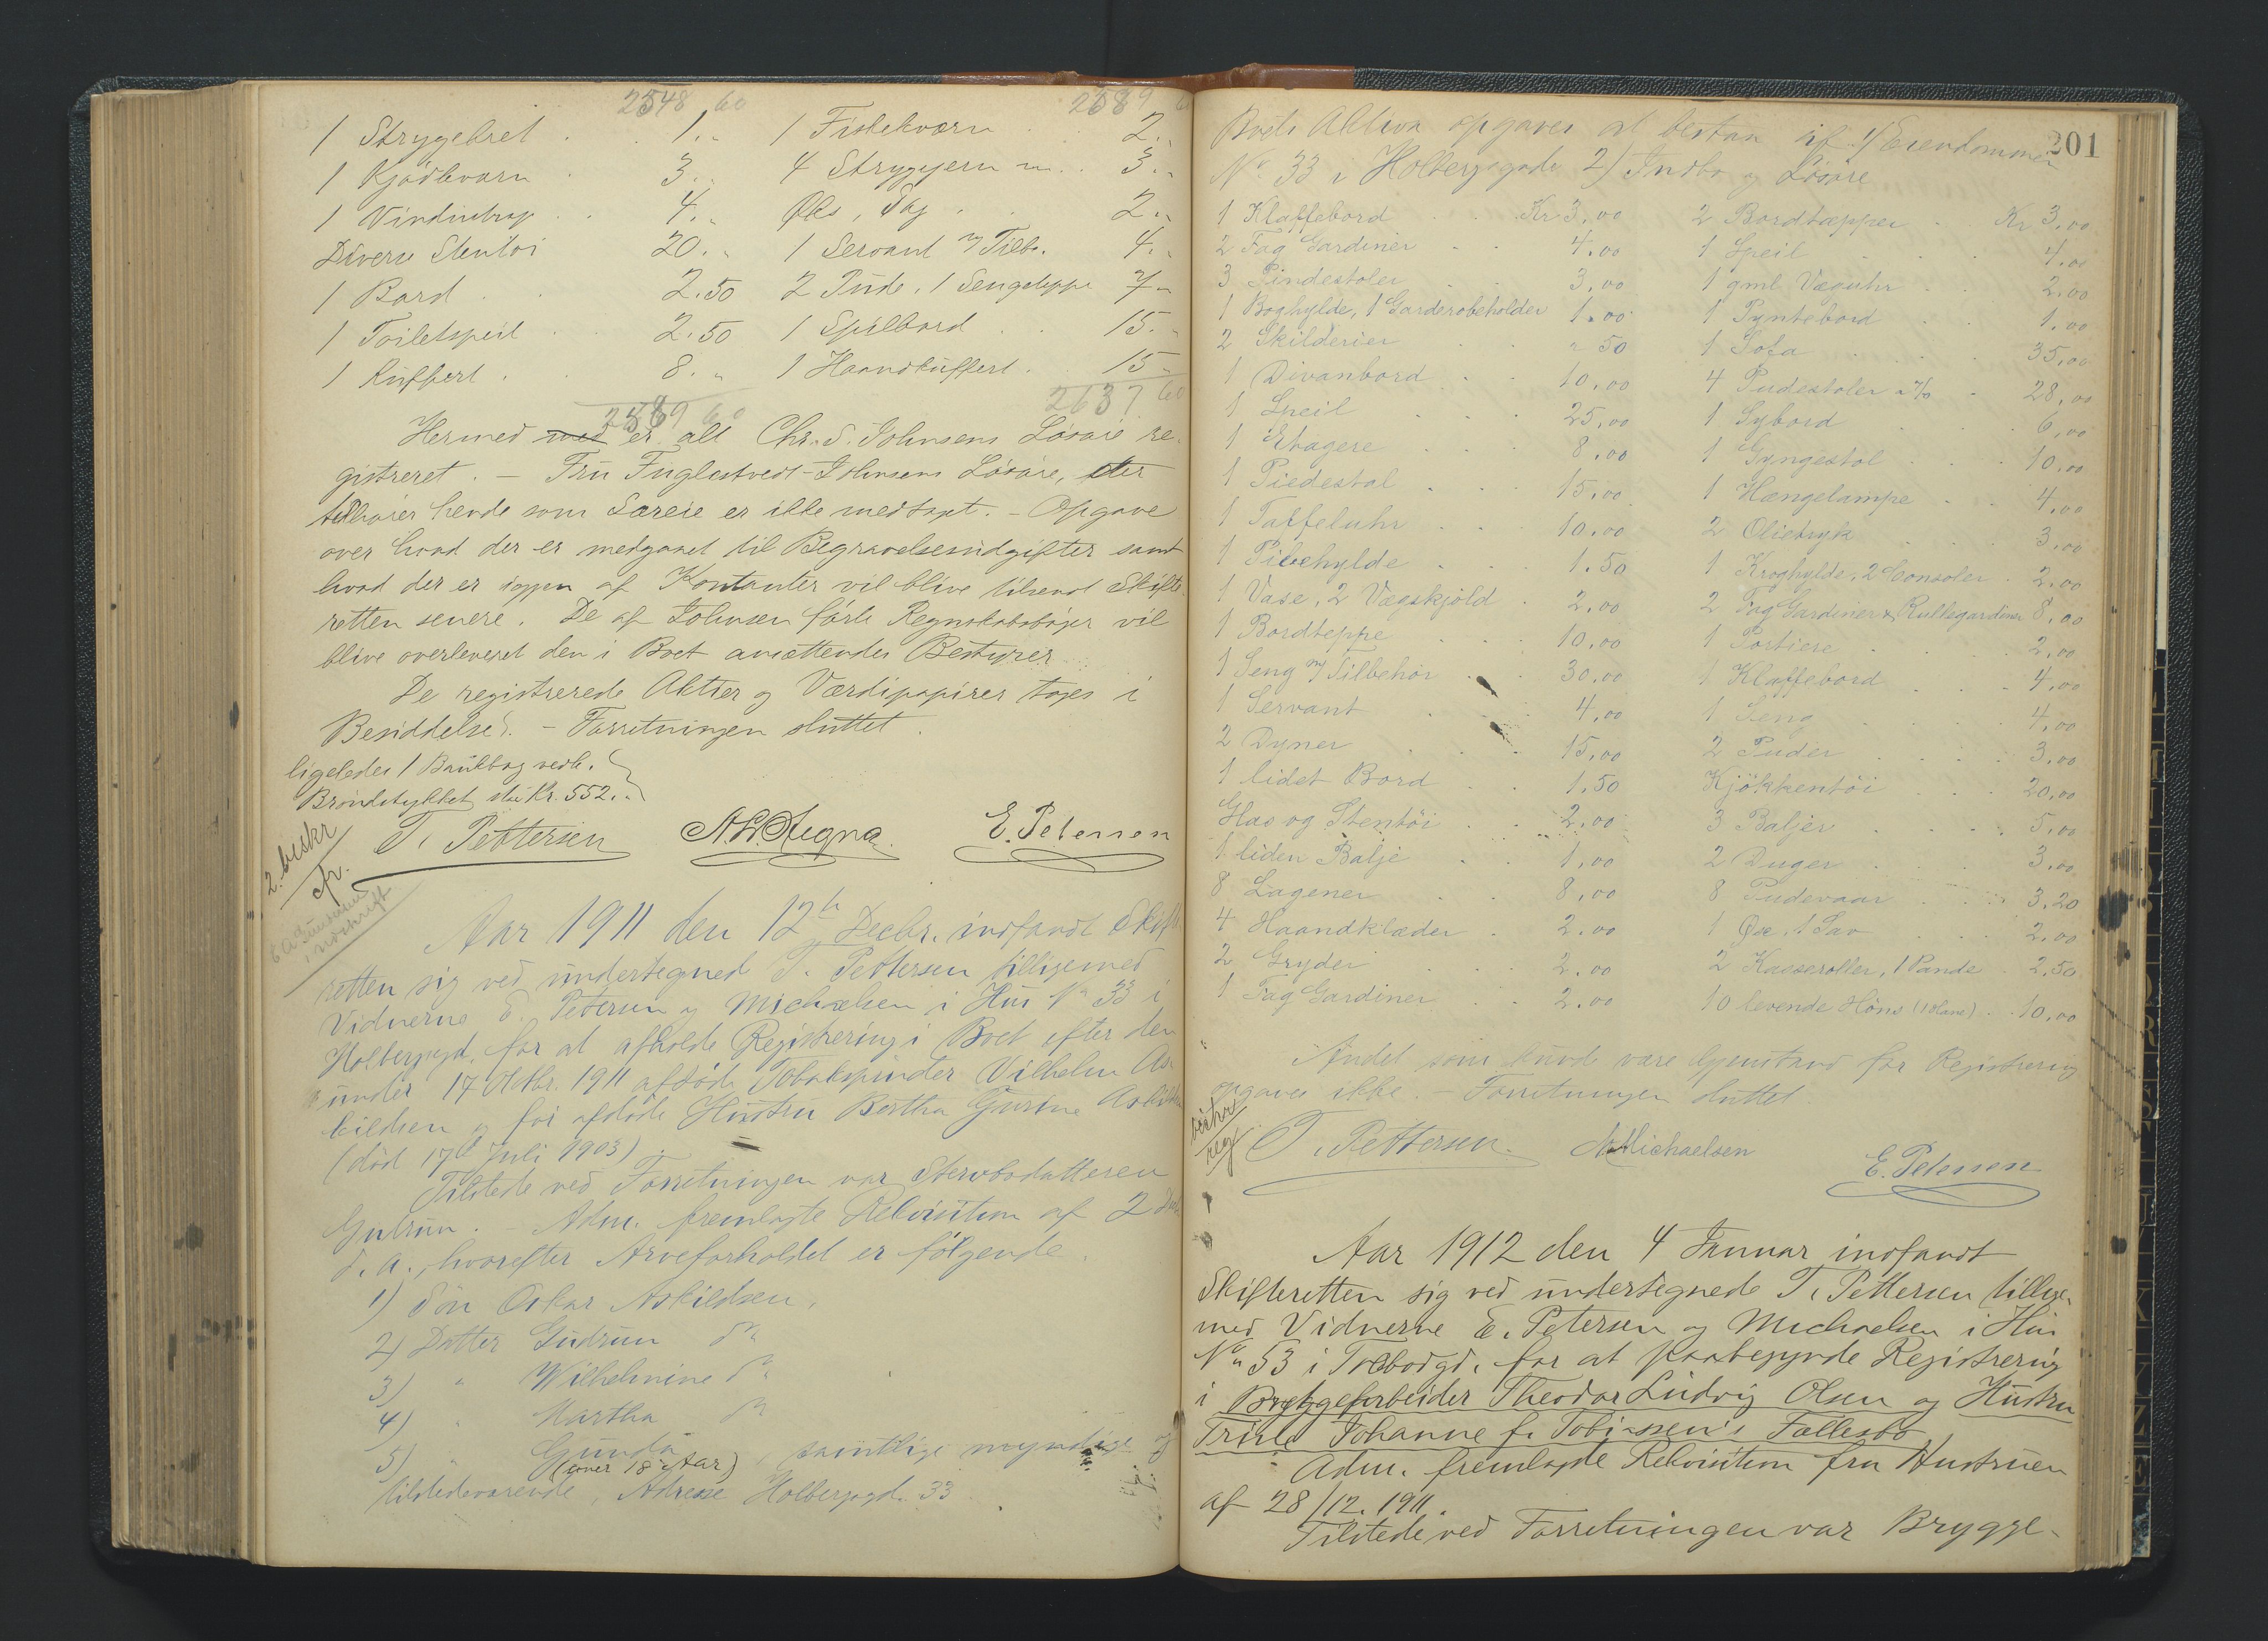 2548 60 2589
1 Strygebret . . 1. „ 1 Fiskekværn . 2. „
1 Kjødkvarn . 3. „ 4 Strygejern m. . 3. „
1 Vindutrap . . 4. „ Øks, Sag . . 2. „
Diverse Stentøi 20. „ 1 Servant m/ Tilbr. 4. „
1 Bord . . 2.50 2 Pude, 1 Sengeteppe 7 „
1 Toiletspeil . . 2.50 1 Spilbord . . 15. „
1 Kuffert . . 8. „ 1 Haandkuffert . 15 „
2589 60 2637 60
Hermed med er alt Chr. S. Johnsens Løsøre re-
gistreret. – Fru Fuglestvedt-Johnsens Løsøre, der
tilhører hende som Særeie er ikke medtaget. – Opgave
over hvad der er medgaaet til Begravelsesudgifter samt
hvad der er igjen af Kontanter vil blive tilsendt Skifte-
retten senere. De af Johnsen førte Regnskabsbøger vil
blive overleveret den i Boet ansættendes Bestyrer.
De registrerede Aktier og Værdipapirer tages i
Besiddelse. – Forretningen sluttet.
ligeledes 1 Bankbog vedk.
Brøndstykket stor Kr. 552. „
T. Pettersen E. Petersen
2. beskr
Aar 1911 den 12te Decbr. indfandt Skifte
retten sig ved undertegnede T. Pettersen tilligemed
Vidnerne E. Petersen og Michaelsen i Hus No 33 i
Holbergsgd. for at afholde Registrering i Boet efter den
under 17 Oktbr. 1911 afdøde Tobakspinder Vilhelm As-
kildsen og før afdøde Hustru Bertha Gurine Askilds
(død 17de Juli 1903).
Tilstede ved Forretningen var Stervbodatteren
Gudrun. – Adm. fremlagte Rekvisition af 2 Dec
d. a., hvorefter Arveforholdet er følgende.
1) Søn Oskar Askildsen.
2) Datter Gudrun do
3) „ Wilhelmine do
4) „ Martha do
5) „ Gunda , samtlige myndige og
(over 18 Aar)
tilstedeværende, Adresse Holbergsgd. 33
201
Boets Aktiva opgaves at bestaa af 1/ Eiendommen
No 33 i Holbergsgade 2/ Indbo og Løsøre
1 Klaffebord . . Kr 3,00 2 Bordtæpper . Kr 3,00
2 Fag Gardiner . . 4,00 1 Speil . . . 4,00
3 Pindestoler . . 3,00 1 gml Væguhr . . 2,00
1 Boghylde, 1 Garderobeholder 1.00 1 Pyntebord . . 1,00
2 Skilderier . . „ 50 1 Sofa . . . 35,00
1 Divanbord . . 10,00 4 Pudestoler a 7/0 . 28,00
1 Speil . . 25,00 1 Sybord . . . 6,00
1 Etagere . . . 8,00 1 Gyngestol . . 10,00
1 Piedestal . . 15,00 1 Hængelampe . . 4,00
1 Taffeluhr . . 10,00 2 Olietryk . . . 3,00
1 Pibehylde . . 1.50 1 Kroghylde, 2 Consoler . 2,00
1 Vase, 2 Vægskjold . 2,00 2 Fag Gardiner & Rullegardiner 8,00
1 Bordteppe . . 10,00 1 Portiere . . . 2,00
1 Seng m/ Tilbehør . . 30,00 1 Klaffebord . . . 4,00
1 Servant . . 4,00 1 Seng . . . 4,00
2 Dyner . . 15,00 2 Puder . . . 3,00
1 lidet Bord . . 1,50 Kjøkkentøi . . . 20,00
Glas og Stentøi . . 2,00 3 Baljer . . . 5,00
1 liden Balje . . 1,00 2 Duger . . . 3,00
8 Lagener . . 8,00 8 Pudevaar . . . 3,20
4 Haandklæder . . 2,00 1 Øxe, 1 Sav . . . 2,00
2 Gryder . . 2,00 2 Kasseroller, 1 Pande . 2,50
1 Fag Gardiner . . 2,00 10 levende Høns (1 Hane) . . 10,00
Andet som kunde være Gjenstand for Registrering
opgaves ikke. – Forretningen sluttet.
T. Pettersen. Michaelsen
E. Petersen
Aar 1912 den 4 Januar indfandt
Skifteretten sig ved undertegnede T. Pettersen tillige-
med Vidnerne E. Petersen og Michaelsen i Hus
No 53 i Tolbodgd. for at paabegynde Registrering
i Bryggearbeider Theodor Ludvig Olsen og Hustru
Johanne f. Tobiassen's Fællesbo
Adm. fremlagde Rekvisition fra Hustruen
af 28/12. 1911.
Tilstede ved Forretningen var Brygge-